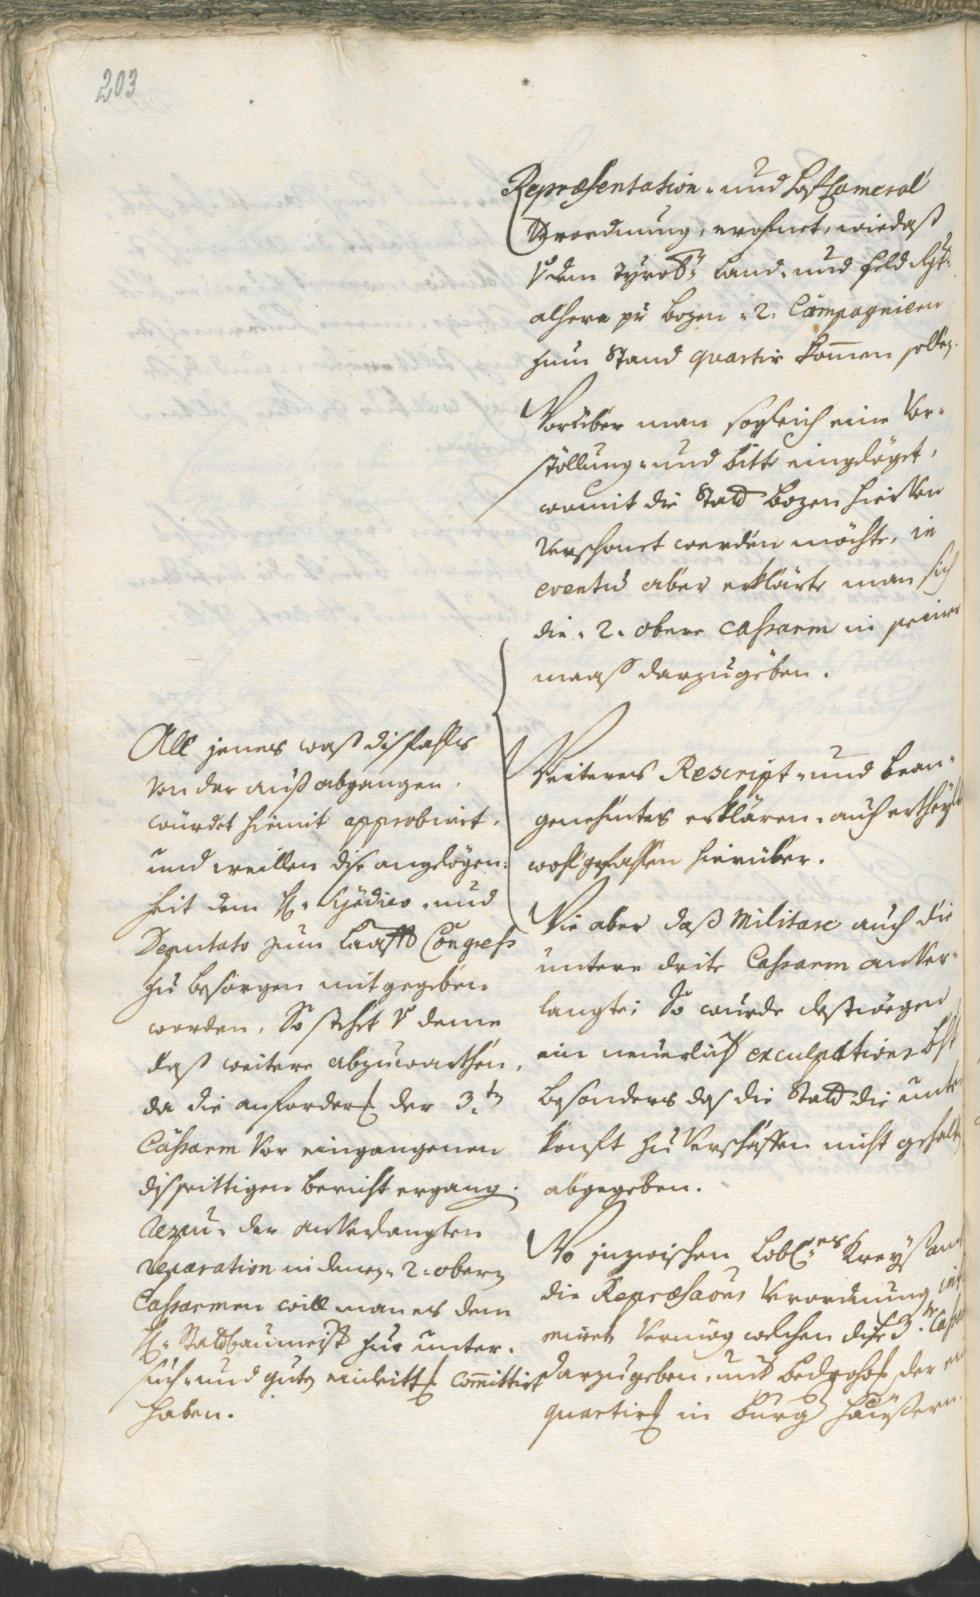 203
Repræsentation- und Hof Cameral
Verordnung, erofnet, wiedaß
von dem Tyrol. Land- und feld Rgt.
alhero zu Bozen 2. Campagnien
zum Stand quartir kommen sollen.
Worüber man sogleich eine Vor-
stöllung- und bitte eingelöget,
womit die Statt Bozen hievon
Verschonet werden möchte, in
eventu aber erklärte man sich
die 2. obere Cassarm in seiner
maass darzugeben.
Weiteres Rescript- und
genehmtes erklären, auch ertheylt
wohlgefahlen hierüber.
Wie aber daß Militare auch die
untere drite Cassarm anVer-
langte; So wurde destwögen
ein neuerlich exculpations
besonders das die Statt die unter
konft zu Verschaffen nicht gehalten
abgegeben.
Wo inzwischen Lobl.es Kreysamt
die Repræsaons Verordnung
Vermög welcher dise 3.te Cassarm
darzugeben, mit bedrohung der
quartir in Burg. Haüßern.
All jenes waß dißfahls
Von der auß abgangen,
würdet hiemit approbiert,
und weillen dise angelögen-
heit dem H. Syndico, und
Deputato zum Congress
zu besorgen mitgegeben
worden, So stehet von deme
daß weitere abzuwarthen,
da die anforderung der 3.ten
Cassarm Vor eingangenen
disseittigen bericht ergang.
der anVerlangten
reparation in denen 2. obern
Cassarmen will man es dem
H. Stattbaumeister zur unter-
such- und committirt
haben.